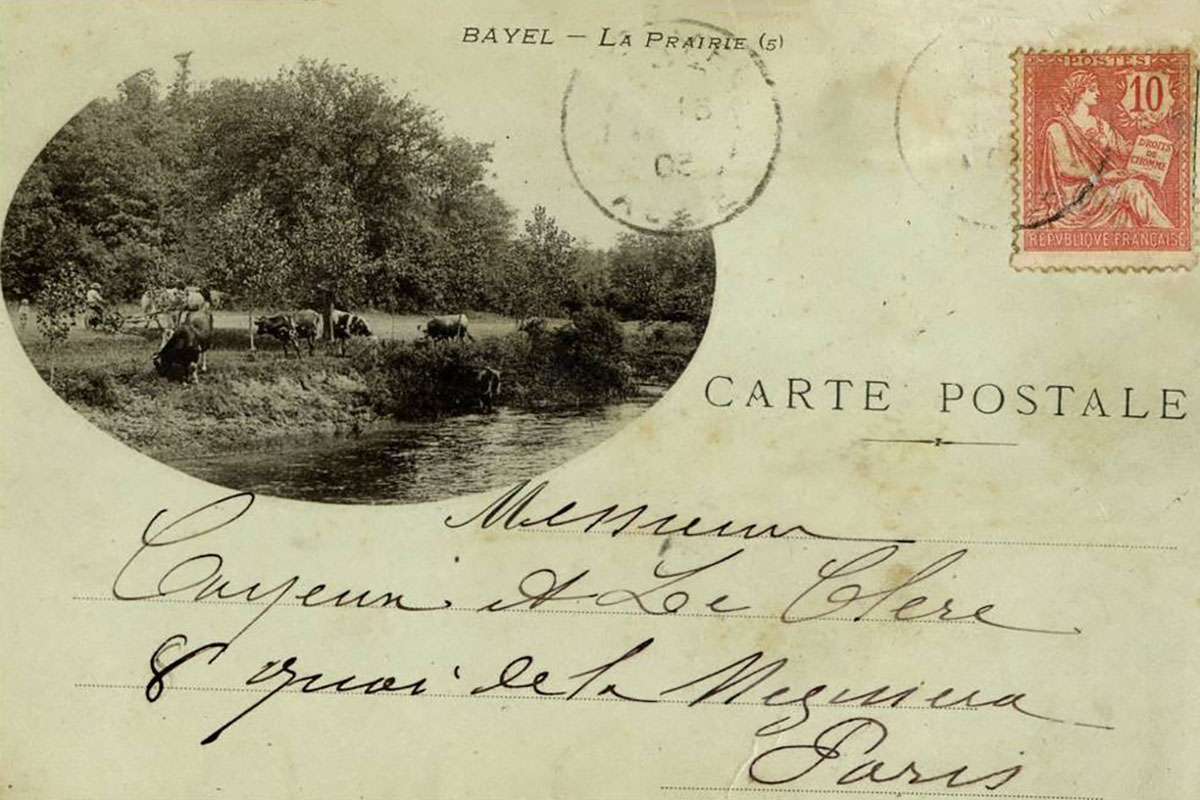 BAYEL — LA PRAIRIE (5)
15
03
AUBE
POSTES
10
DROITS
DE
L'HOMME
REPVBLIQUE FRANÇAISE
CARTE POSTALE
Messieurs
Cayeux et Le Clerc
8 quai de la Megisserie
Paris